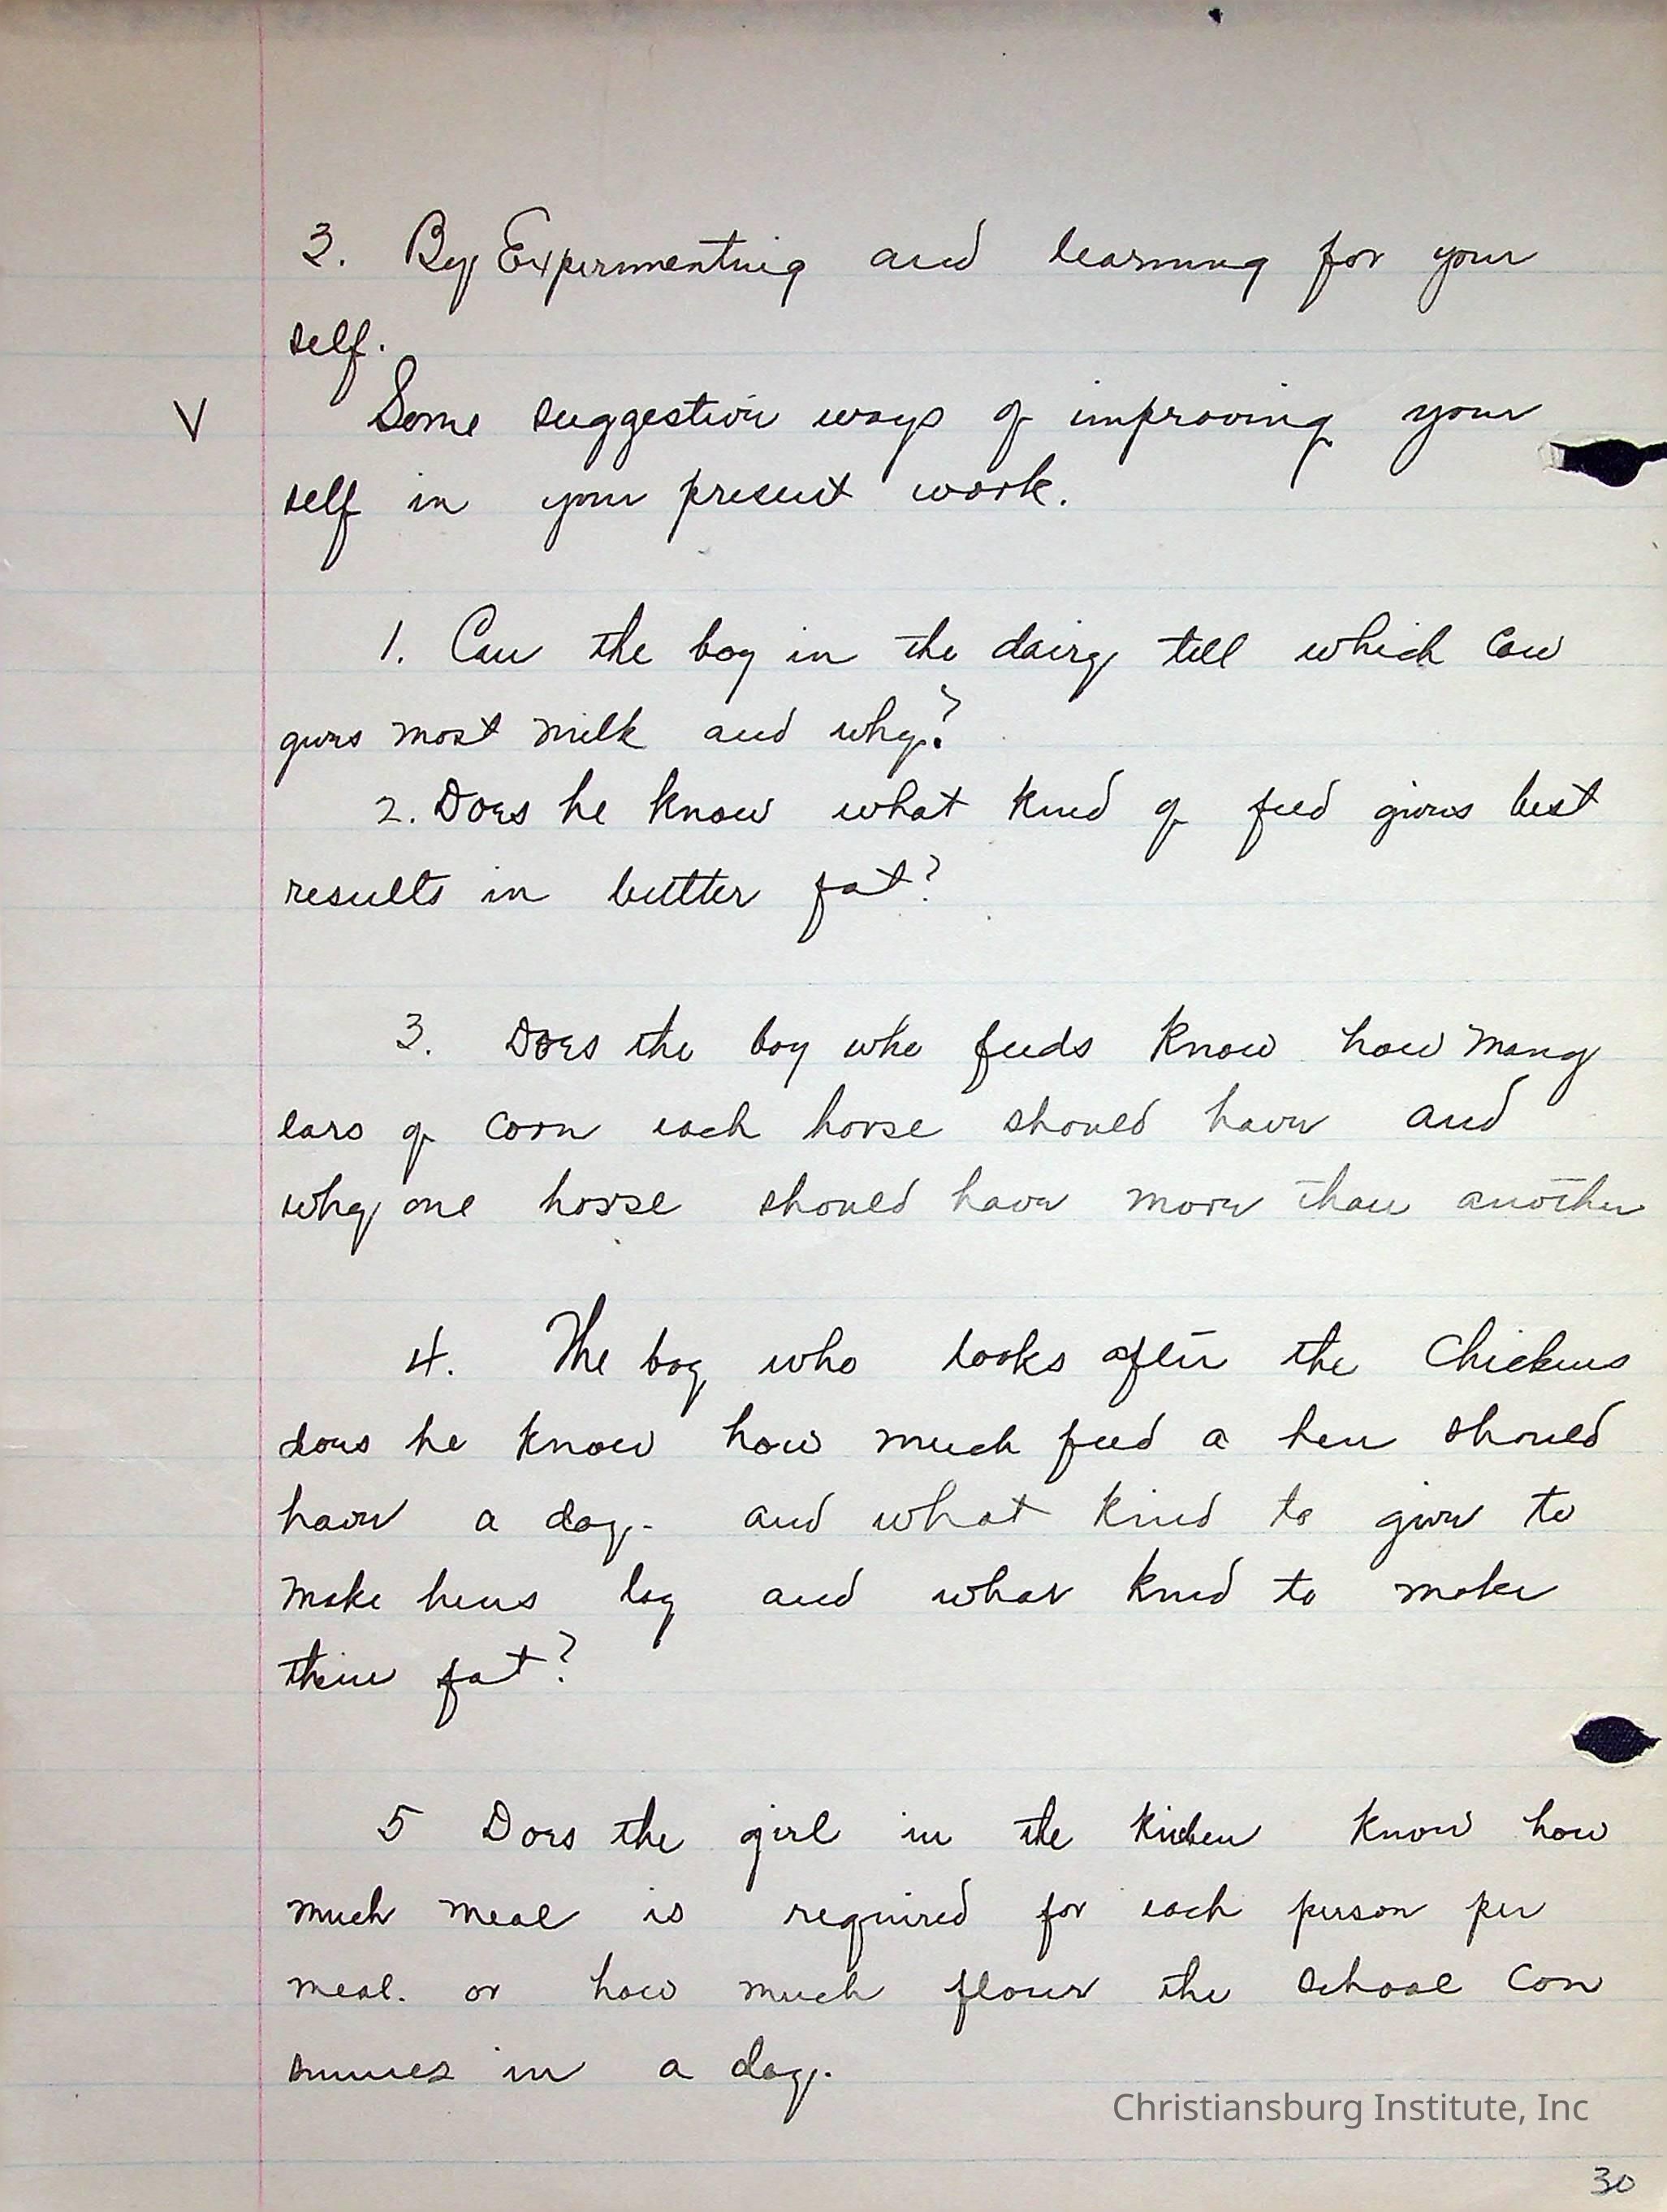 3. By Experimenting and learning for your
self.
V Some suggestive ways of improving your
self in your present work.
1. Can the boy in the dairy tell which Cow
gives most milk and why?
2. Does he know what kind of feed gives best
results in butter fat?
3. Does the boy who feeds know how many
ears of corn each horse should have and
why one horse should have more than another
4. The boy who looks after the Chickens
does he know how much feed a hen should
have a day. and what kind to give to
make hens lay and what kind to make
them fat?
5 Does the girl in the kichen know how
much meal is required for each person per
meal. or how much flour the school con
sumes in a day.
Christiansburg Institute, Inc
30